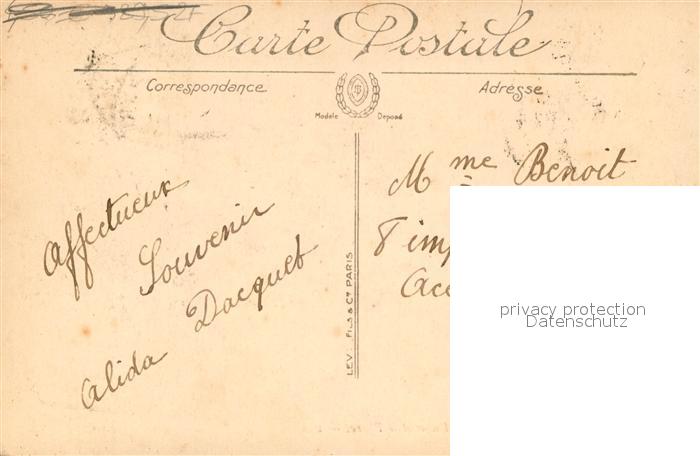 Carte Postale
Correspondance
Adresse
Modèle Déposé
Affectueux
Souvenir
Dacquet
Alida
LEV. FILS & Cie PARIS
Mme Benoit
8 imp
Acc
privacy protection
Datenschutz